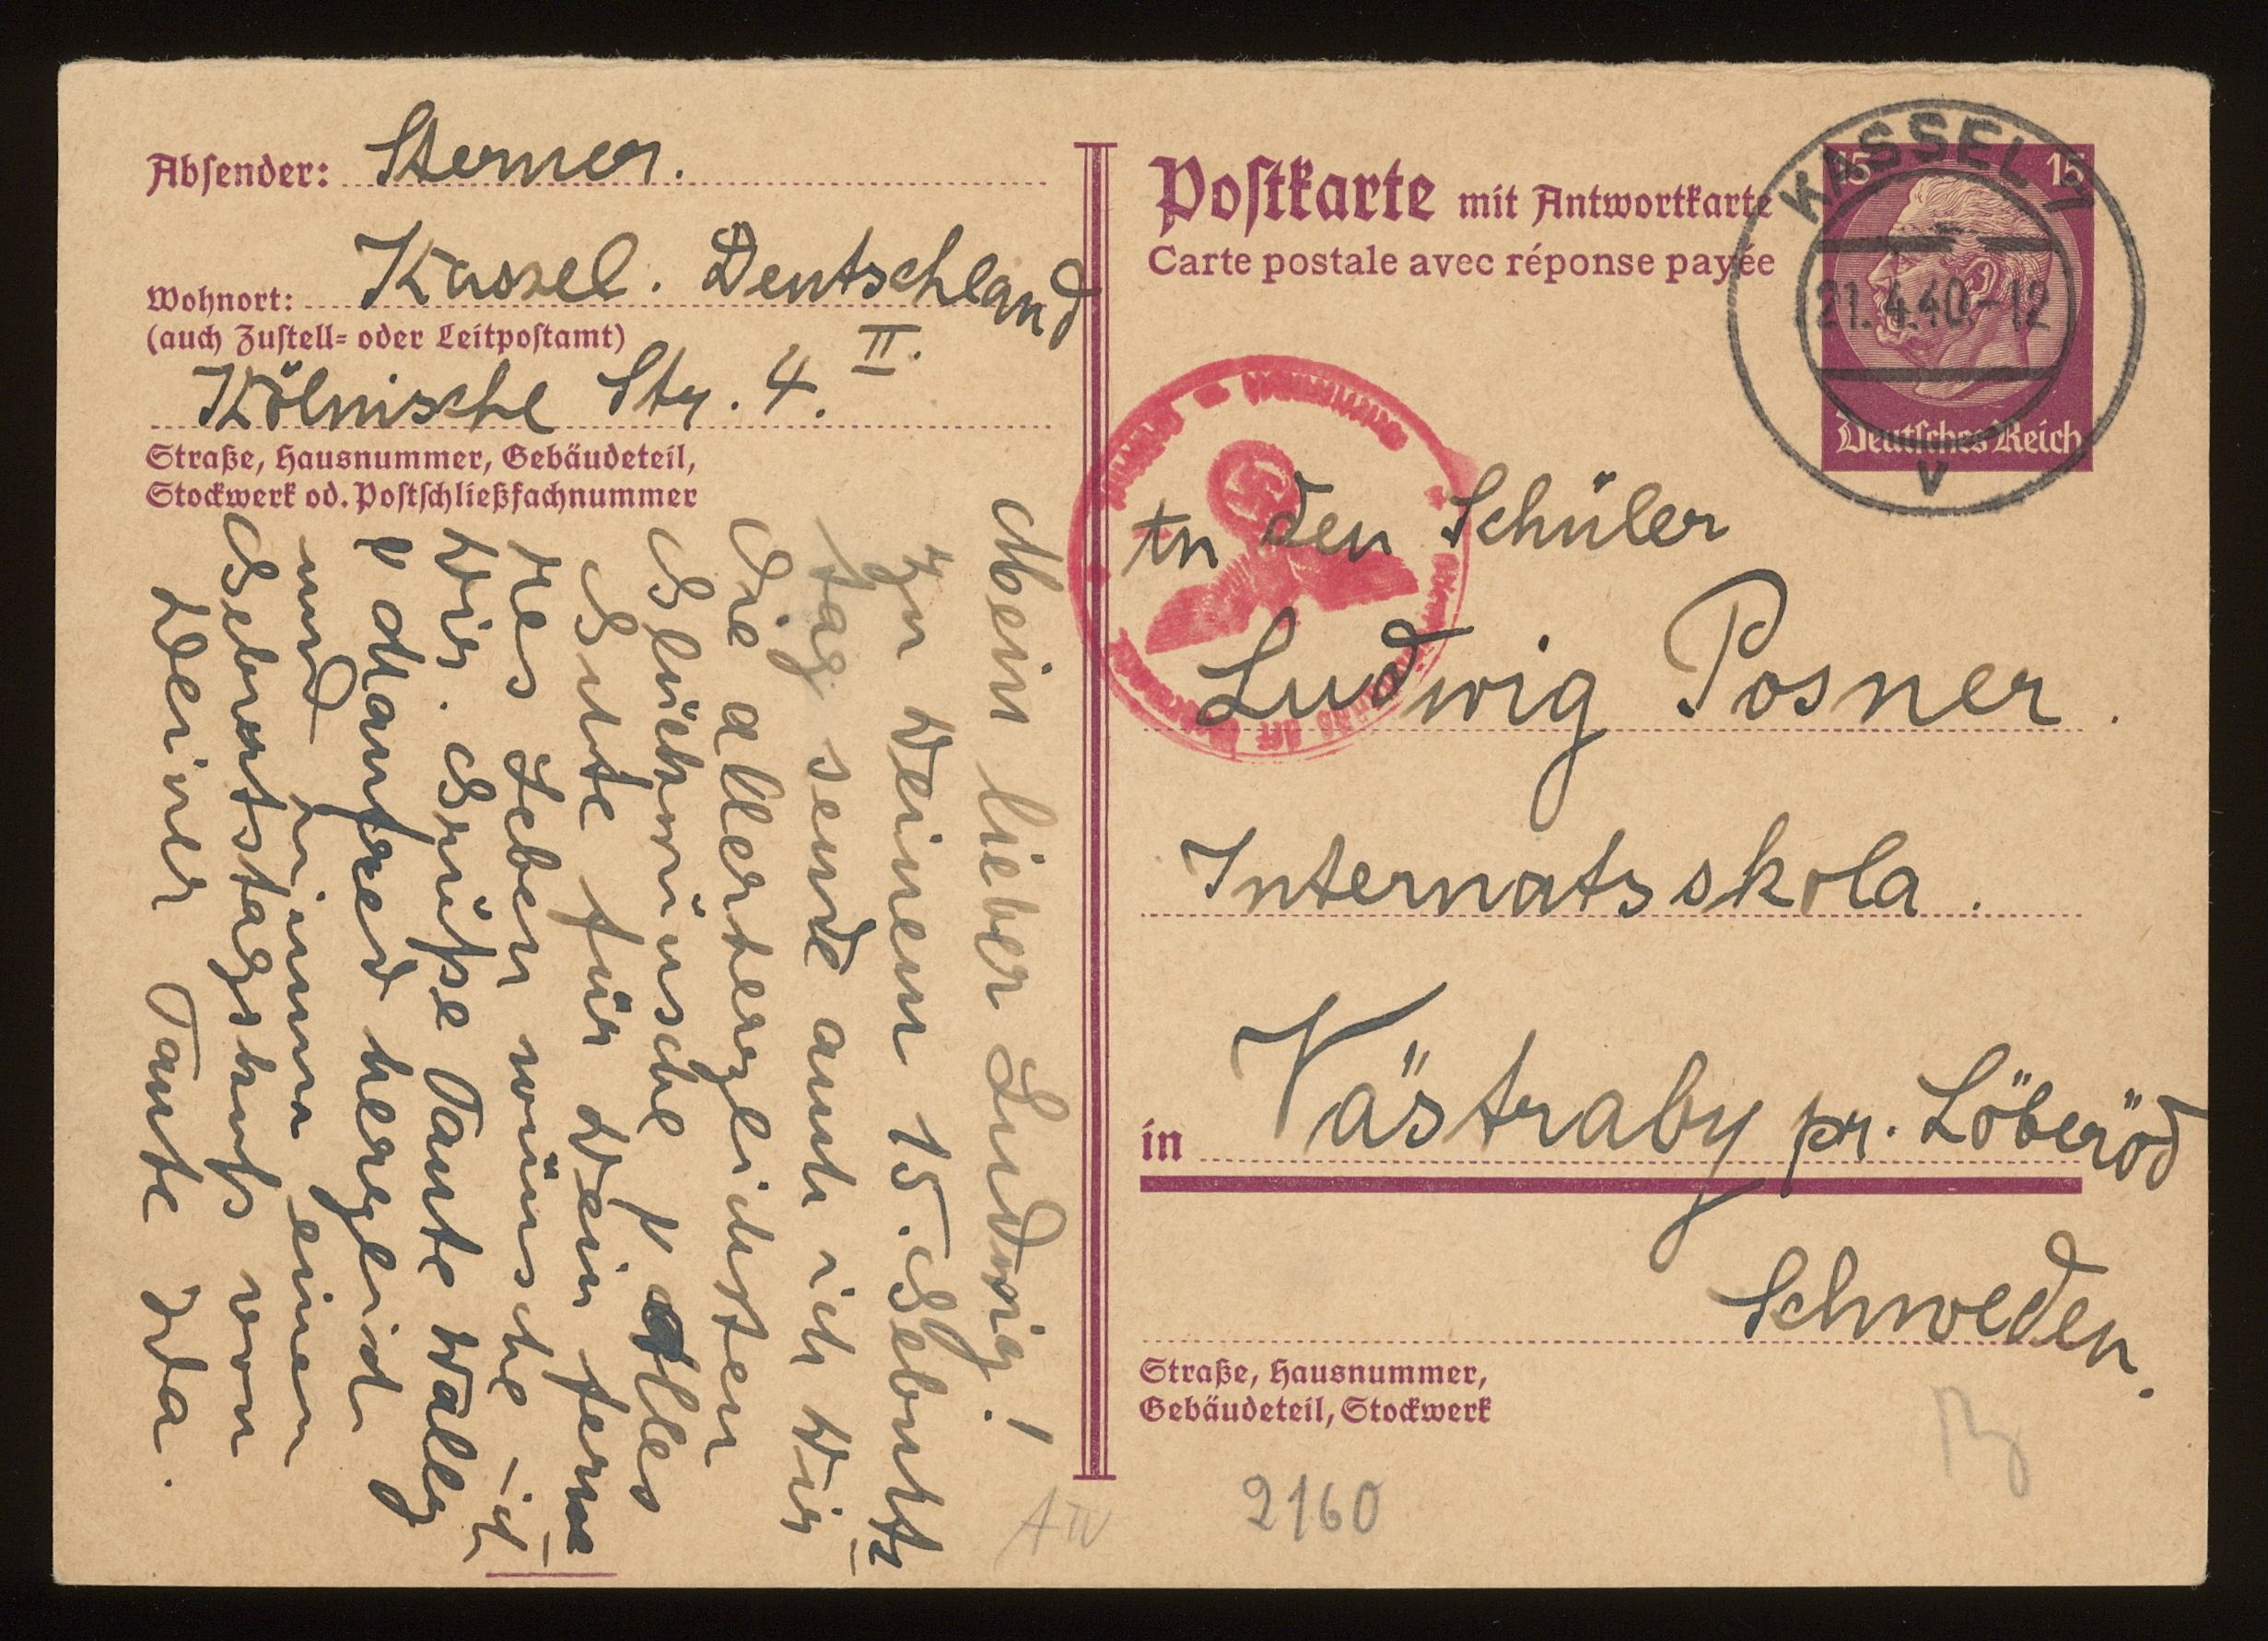 Absender: Sterner.
Wohnort: Kassel. Deutschland
(auch Zustell- oder Leitpostamt)
Kölnische Str. 4. II.
Straße, Hausnummer, Gebäudeteil,
Stockwerk od. Postschließfachnummer
Mein lieber Ludwig!
Zu Deinem 15. Geburts
tag sende auch ich Dir
die allerherzlichsten
Glückwünsche! Alles
Gute für Dein ferne
res Leben wünsche ich
Dir. Grüße Tante Wally
Manfred herzlich
und nimm einen
Geburtstagskuß von
Deiner Tante Ida.
Postkarte mit Antwortkarte
Carte postale avec réponse payée
15 15
Deutsches Reich
KASSEL 7
21.4.40.-12
v
An den Schüler
Ludwig Posner.
Internatsskola.
in Västraby pr. Löberöd
Schweden.
Straße, Hausnummer,
Gebäudeteil, Stockwerk
2160